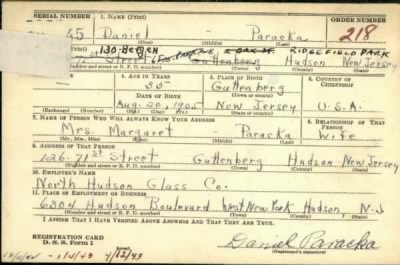 SERIAL NUMBER 1. NAME (Print) ORDER NUMBER
45 Daniel - Paracka 218
(First) (Middle) (Last)
130 Bergen RIDGEFIELD PARK
Street Guttenberg Hudson New Jersey
(Number and street or R. F. D. number) (Town) (County) (State)
3. TELEPHONE 4. AGE IN YEARS 5. PLACE OF BIRTH 6. COUNTRY OF CITIZENSHIP
35 Guttenberg
DATE OF BIRTH (Town or county)
Aug. 20, 1905 New Jersey U.S.A.
(Exchange) (Number) (Mo.) (Day) (Yr.) (State or country)
7. NAME OF PERSON WHO WILL ALWAYS KNOW YOUR ADDRESS 8. RELATIONSHIP OF THAT PERSON
Mrs. Margaret - Paracka Wife
(Mr., Mrs., Miss) (First) (Middle) (Last)
9. ADDRESS OF THAT PERSON
126-71st Street Guttenberg Hudson New Jersey
(Number and street or R. F. D. number) (Town) (County) (State)
10. EMPLOYER'S NAME
North Hudson Glass Co.
11. PLACE OF EMPLOYMENT OR BUSINESS
6304 Hudson Boulevard West New York Hudson N.J
(Number and street or R. F. D. number) (Town) (County) (State)
I AFFIRM THAT I HAVE VERIFIED ABOVE ANSWERS AND THAT THEY ARE TRUE.
REGISTRATION CARD
D. S. S. Form 1 Daniel Paracka
4/12/43 (Registrant's signature)